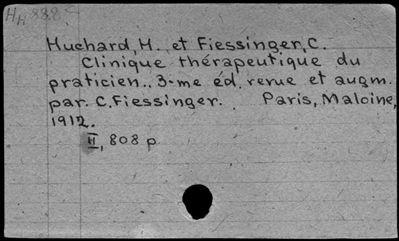 HH 888
Huchard, H. et Fiessinger, C.
Clinique thérapeutique du
praticien.. 3-me éd. revue et augm.
par. C. Fiessinger. Paris, Maloine,
1912.
II, 808 p